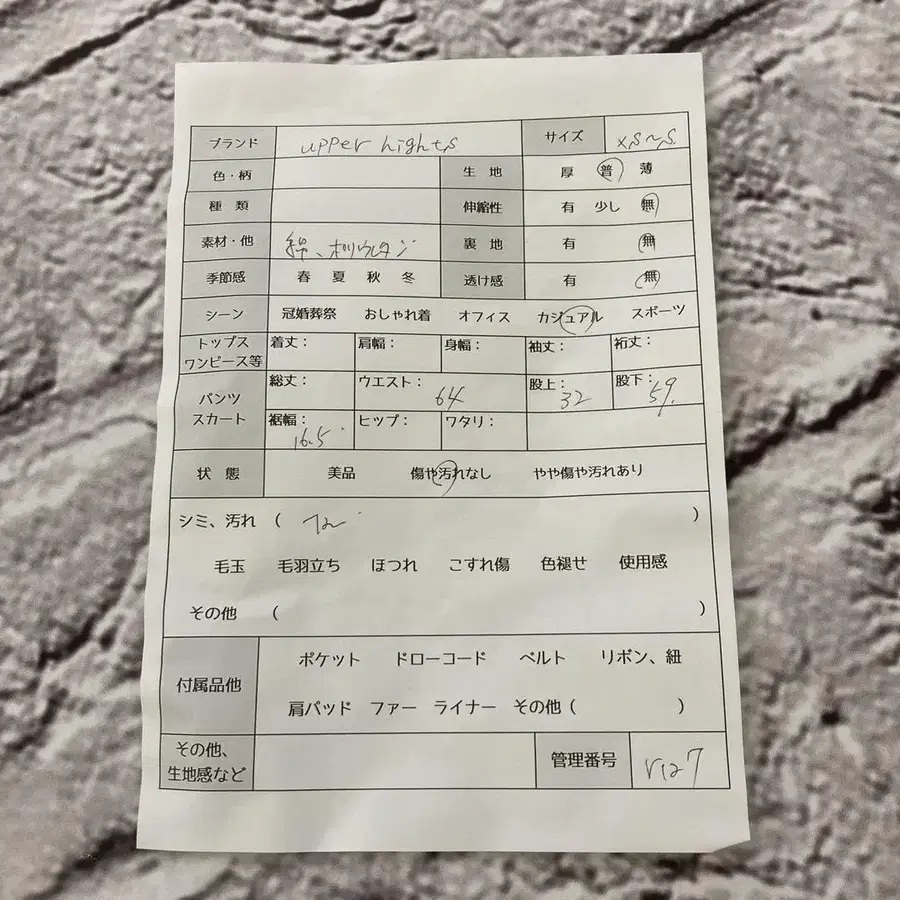 ブランド upper hights サイズ xs~s
色・柄 生地 厚 普 薄
種類 伸縮性 有 少し 無
素材・他 綿、ポリウレタン 裏地 有 無
季節感 春 夏 秋 冬 透け感 有 無
シーン 冠婚葬祭 おしゃれ着 オフィス カジュアル スポーツ
トップス ワンピース等 着丈： 肩幅： 身幅： 袖丈： 裄丈：
パンツ スカート 総丈： ウエスト： 64 股上： 32 股下： 59
裾幅： 16.5 ヒップ： ワタリ：
状態 美品 傷や汚れなし やや傷や汚れあり
シミ、汚れ （ ）
毛玉 毛羽立ち ほつれ こすれ傷 色褪せ 使用感
その他 （ ）
付属品他 ポケット ドローコード ベルト リボン、紐
肩パッド ファー ライナー その他（ ）
その他、
生地感など 管理番号 r127